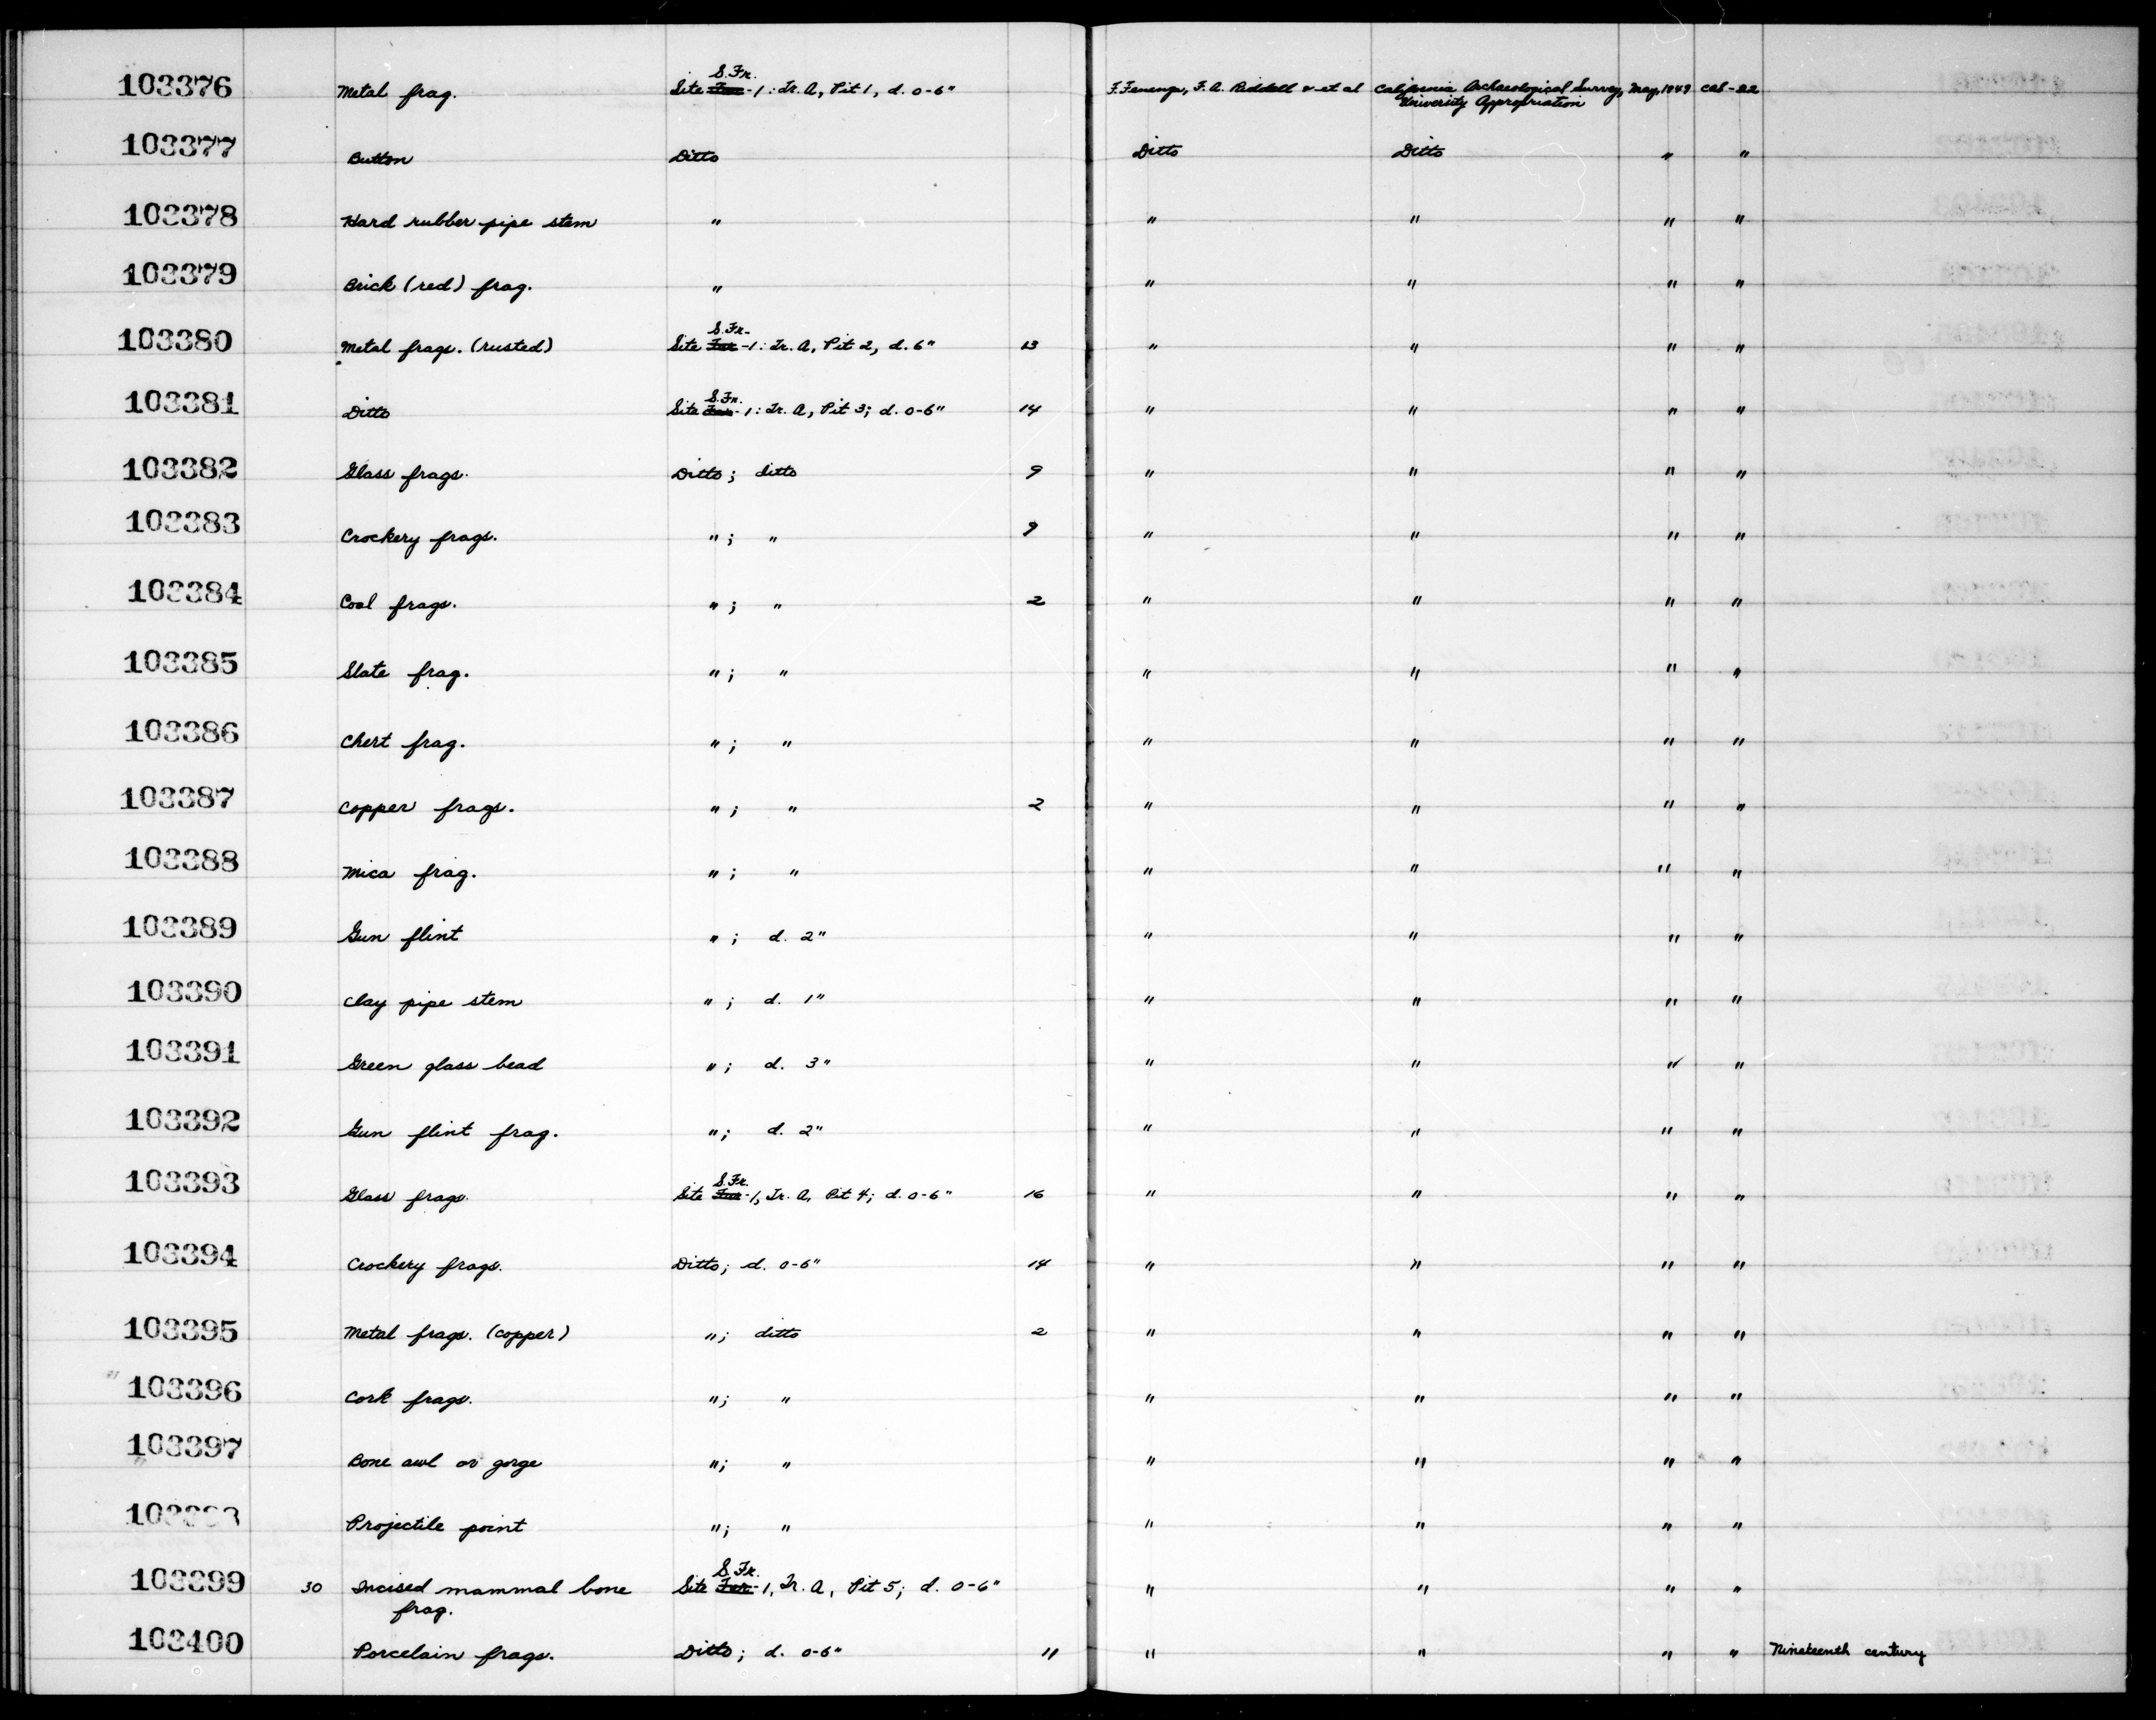 103376 Metal frag. Site Fra S.Fr.-1: Tr. A, Pit 1, d. 0-6" F. Fenenga, F.A. Riddell & et al California Archaeological Survey, May, 1949 CAS-22
University Appropriation
103377 Button Ditto Ditto Ditto " "
103378 Hard rubber pipe stem " " " " "
103379 Brick (red) frag. " " " " "
103380 Metal frags. (rusted) Site S.Fr.-1: Tr. A, Pit 2, d. 6" 13 " " " "
103381 Ditto Site S.Fr.-1: Tr. A, Pit 3; d. 0-6" 14 " " " "
103382 Glass frags. Ditto; ditto 9 " " " "
103383 Crockery frags. "; " 9 " " " "
103384 Coal frags. "; " 2 " " " "
103385 Slate frag. "; " " " " "
103386 Chert frag. "; " " " " "
103387 Copper frags. "; " 2 " " " "
103388 Mica frag. "; " " " " "
103389 Gun flint "; d. 2" " " " "
103390 Clay pipe stem "; d. 1" " " " "
103391 Green glass bead "; d. 3" " " " "
103392 Gun flint frag. "; d. 2" " " " "
103393 Glass frags. Site S.Fr.-1, Tr. A, Pit 4; d. 0-6" 16 " " " "
103394 Crockery frags. Ditto; d. 0-6" 14 " " " "
103395 Metal frags. (copper) "; ditto 2 " " " "
103396 Cork frags. "; " " " " "
103397 Bone awl or gorge "; " " " " "
103398 Projectile point "; " " " " "
103399 30 Incised mammal bone Site S.Fr.-1, Tr. A, Pit 5; d. 0-6" " " " "
frag.
103400 Porcelain frags. Ditto; d. 0-6" 11 " " " " Nineteenth century